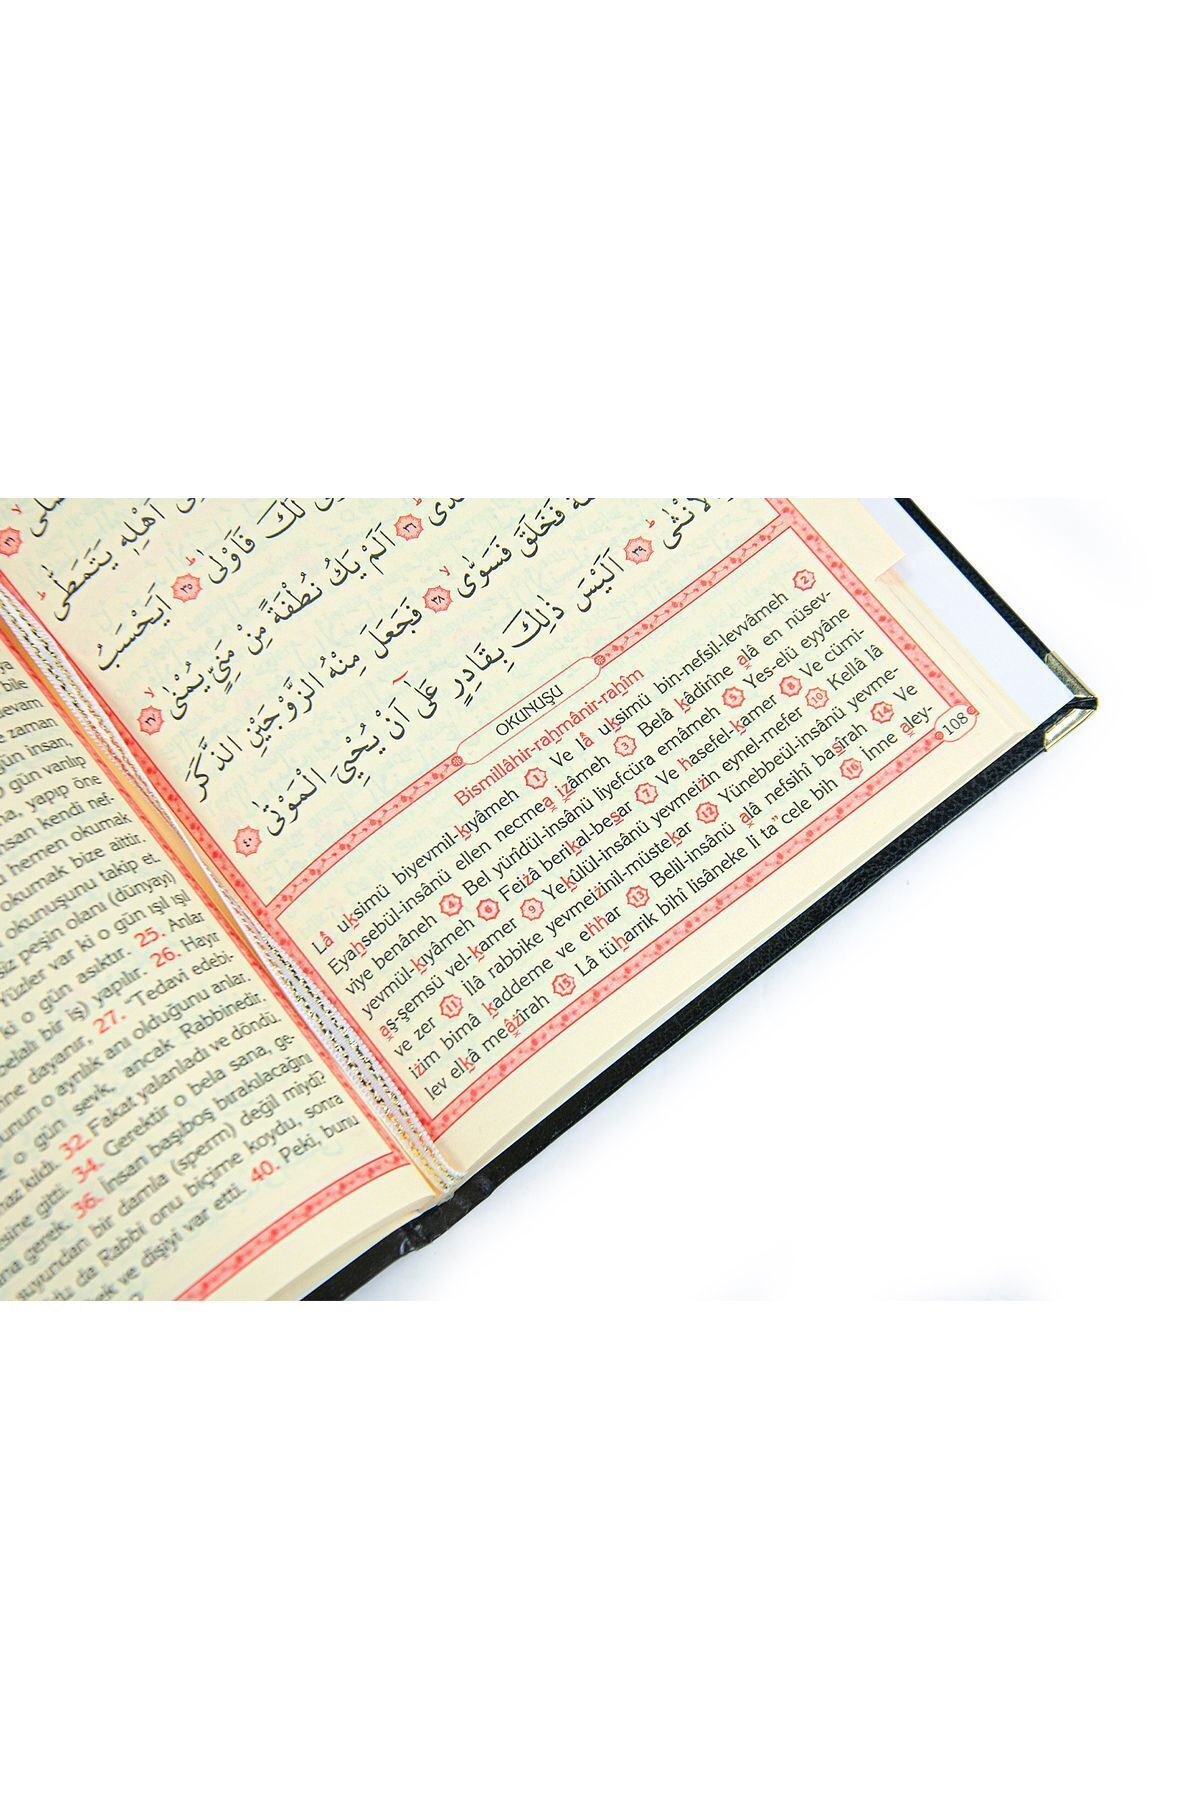 اَهْلِهٖ يَتَمَطّٰىۜ
لَكَ فَاَوْلٰىۜ ﴿٣٥﴾ اَيَحْسَبُ
﴿٣٦﴾ اَلَمْ يَكُ نُطْفَةً مِنْ مَنِيٍّ يُمْنٰىۙ ﴿٣٧﴾
فَخَلَقَ فَسَوّٰىۙ ﴿٣٨﴾ فَجَعَلَ مِنْهُ الزَّوْجَيْنِ الذَّكَرَ
وَالْاُنْثٰىۜ ﴿٣٩﴾ اَلَيْسَ ذٰلِكَ بِقَادِرٍ عَلٰٓى اَنْ يُحْيِيَ الْمَوْتٰى ﴿٤٠﴾
OKUNUŞU
Bismillâhir-rahmânir-rahîm
Lâ uksimü biyevmil-kıyâmeh 1 Ve lâ uksimü bin-nefsil-levvâmeh 2
Eyahsebül-insânü ellen necmea izâmeh 3 Belâ kâdirîne alâ en nüsev-
viye benâneh 4 Bel yürîdül-insânü liyefcüra emâmeh 5 Yes-elü eyyâne
yevmül-kıyâmeh 6 Feizâ berikal-besar 7 Ve hasefel-kamer 8 Ve cümi-
aş-şemsü vel-kamer 9 Yekûlül-insânü yevmeizin eynel-mefer 10 Kellâ lâ
ve zer 11 İlâ rabbike yevmeizinil-müstekar 12 Yünebbeül-insânü yevme-
izim bimâ kaddeme ve ehhar 13 Belil-insânü alâ nefsihî basîrah 14 Ve
lev elkâ meâzîrah 15 Lâ tüharrik bihî lisâneke li ta"cele bih 16 İnne aley-
108
bile
devam
zaman
gün insan,
gün varılıp
yapıp öne
insan kendi nef-
hemen okumak
okumak bize aittir.
okunuşunu takip et.
siz peşin olanı (dünyayı)
Yüzler var ki o gün ışıl ışıl
ki o gün asıktır. 25. Anlar
belalı bir iş) yapılır. 26. Hayır
dayanır, 27. "Tedavi edebi-
unun o ayrılık anı olduğunu anlar.
o gün sevk, ancak Rabbinedir.
kıldı. 32. Fakat yalanladı ve döndü.
esine gitti. 34. Gerektir o bela sana, ge-
gerek. 36. İnsan başıboş bırakılacağını
suyundan bir damla (sperm) değil miydi?
da Rabbi onu biçime koydu, sonra
ve dişiyi var etti. 40. Peki, bunu